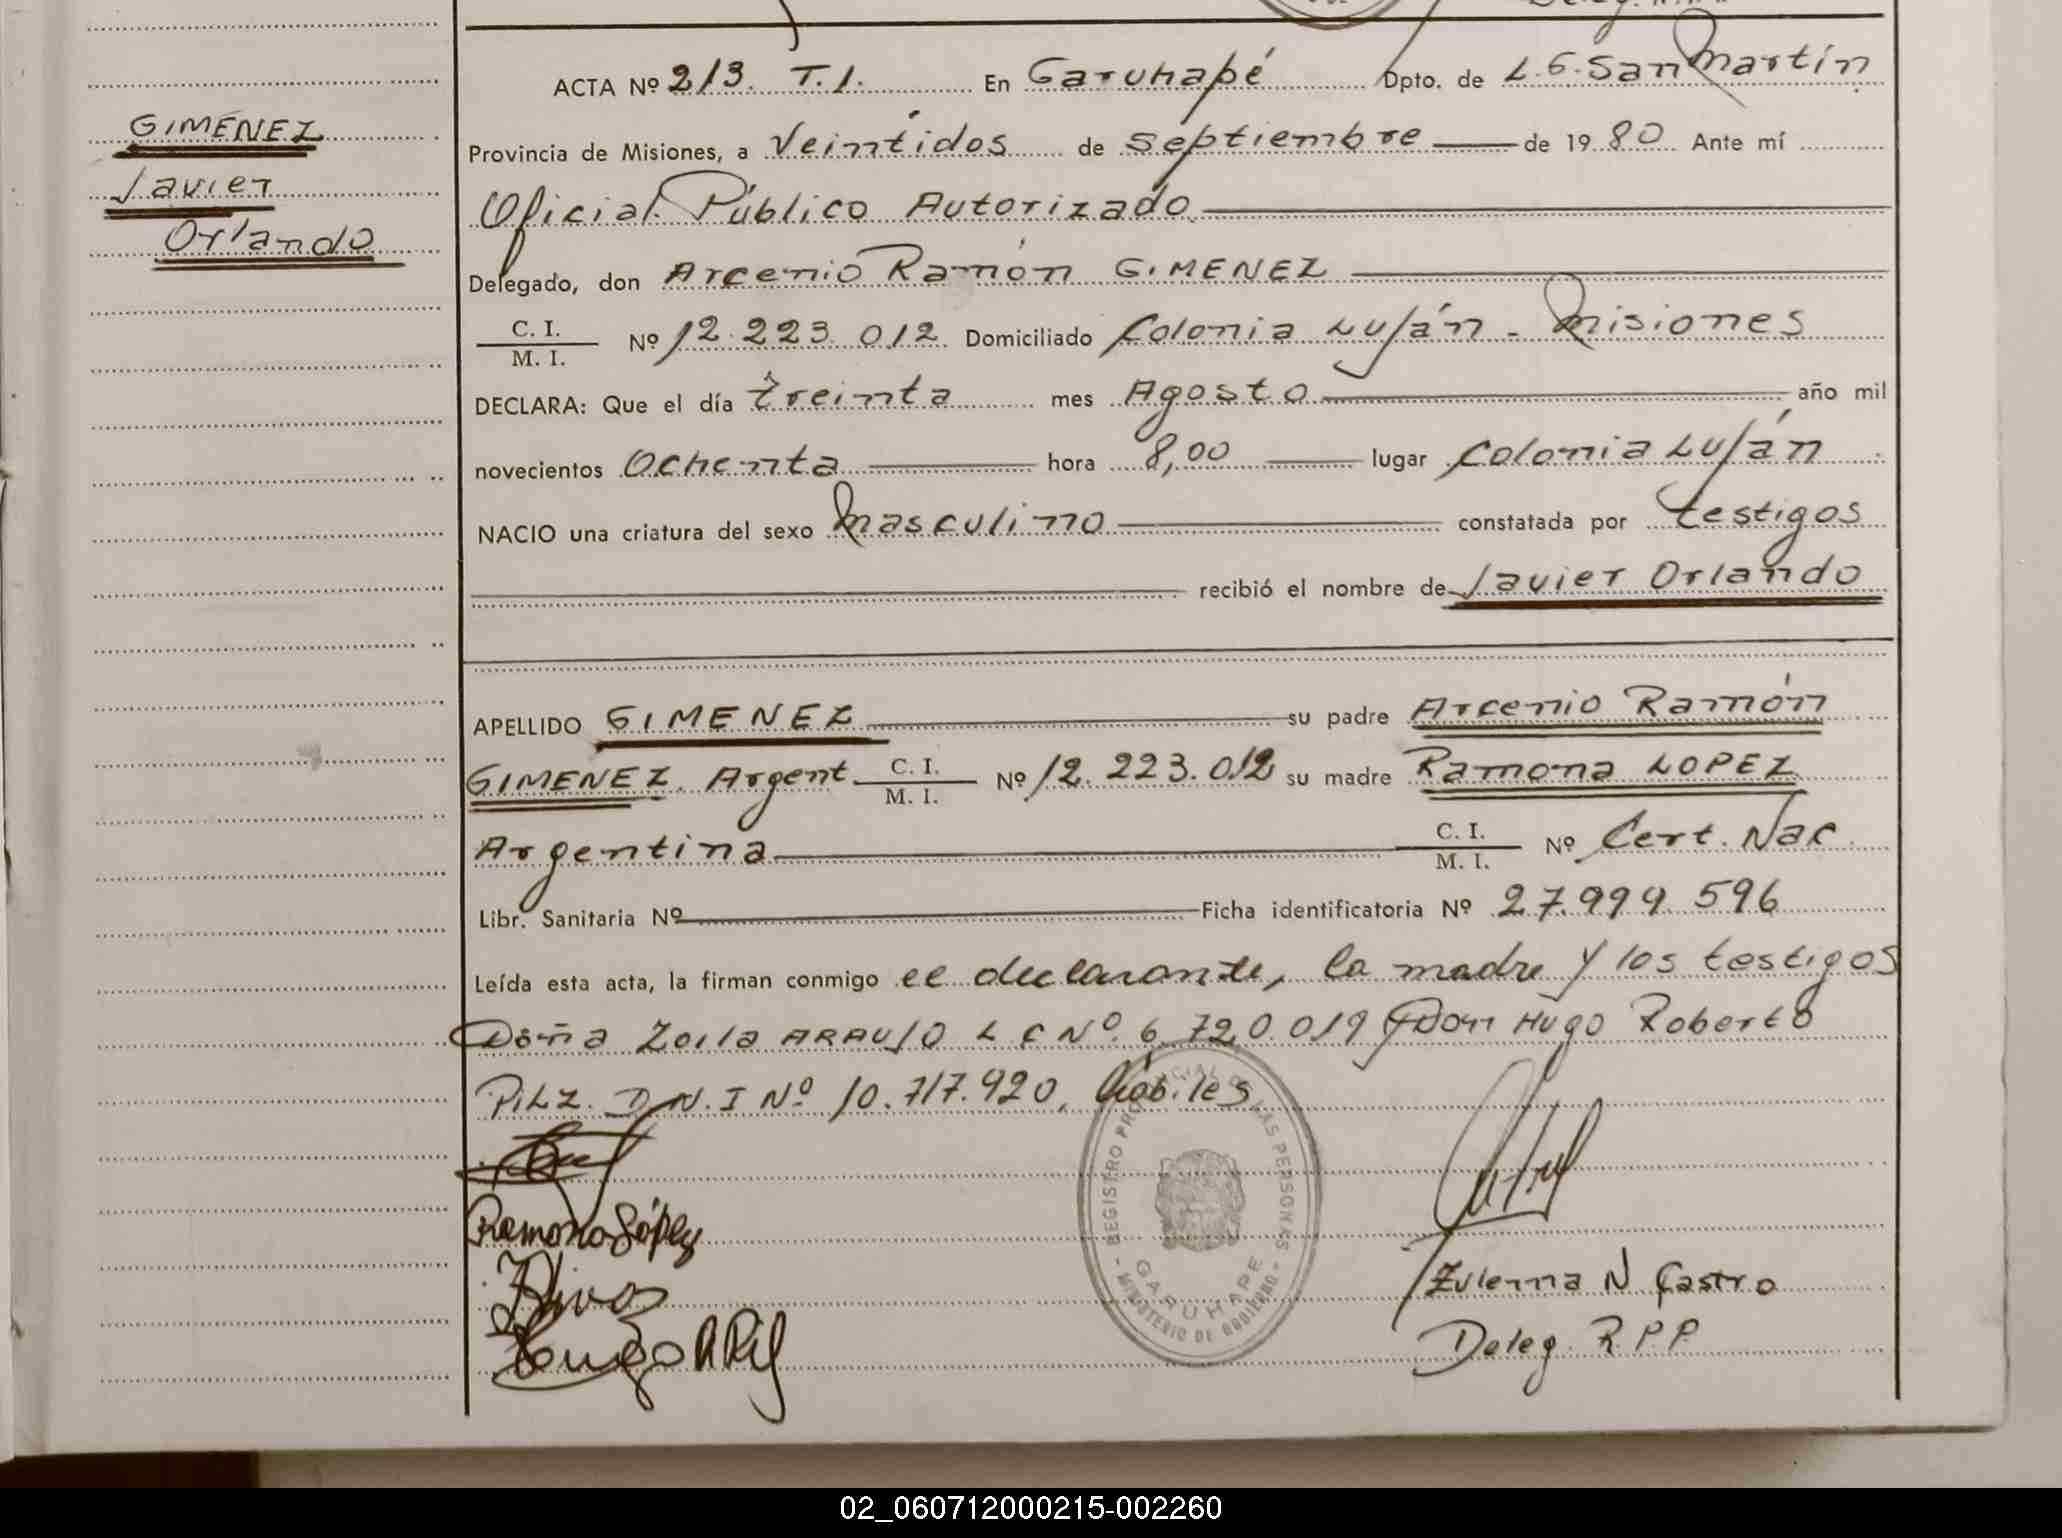 GIMENEZ
Javier
Orlando
ACTA Nº 213. T.I. En Garuhapé Dpto. de L.G. San Martín
Provincia de Misiones, a Veintidos de septiembre de 1980 Ante mí
Oficial Público Autorizado
Delegado, don Arcenio Ramón GIMENEZ
C. I.
M. I.
Nº 12.223.012 Domiciliado Colonia Luján - Misiones
DECLARA: Que el día treinta mes Agosto año mil
novecientos Ochenta hora 8,00 lugar Colonia Luján
NACIO una criatura del sexo Masculino constatada por testigos
recibió el nombre de Javier Orlando
APELLIDO GIMENEZ su padre Arcenio Ramón
GIMENEZ. Argent. C. I. M. I. Nº 12.223.012 su madre Ramona LOPEZ
Argentina C. I. M. I. Nº Cert. Nac.
Libr. Sanitaria Nº Ficha identificatoria Nº 27.999.596
Leída esta acta, la firman conmigo el declarante, la madre y los testigos
Doña Zoila ARAUJO L C Nº. 6.720.019 y Don Hugo Roberto
PILZ. D.N.I Nº 10.717.920, hábiles
Ramona López
REGISTRO PROVINCIAL DE LAS PERSONAS
GARUHAPE
- MINISTERIO DE GOBIERNO -
Hugo R Pilz
Zulema N Castro
Deleg. R.P.P.
02_060712000215-002260